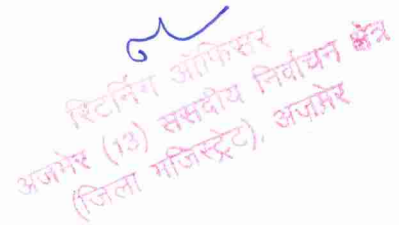 रिटर्निंग ऑफिसर
अजमेर (13) संसदीय निर्वाचन क्षेत्र
(जिला मजिस्ट्रेट), अजमेर